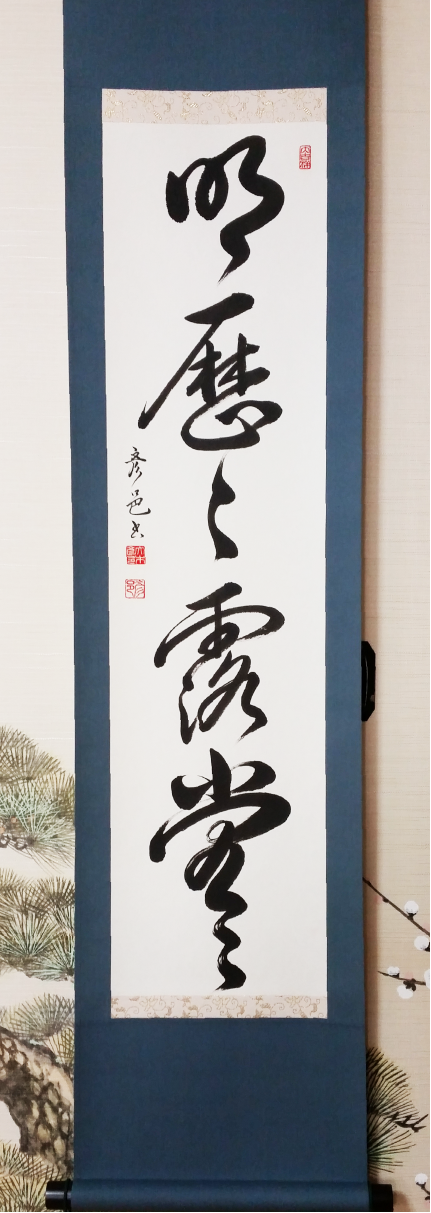 明歴々露堂々
彦邑書